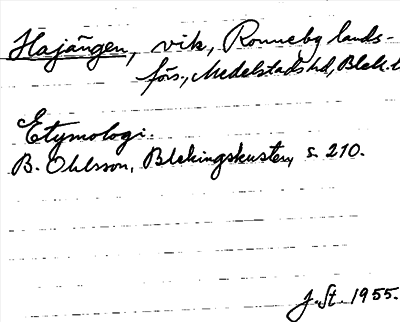 Hajängen, vik, Ronneby lands-
förs., Medelstads hd, Blek. l
Etymologi.
B. Ohlsson, Blekingskusten, s. 210.
J. St. 1955.